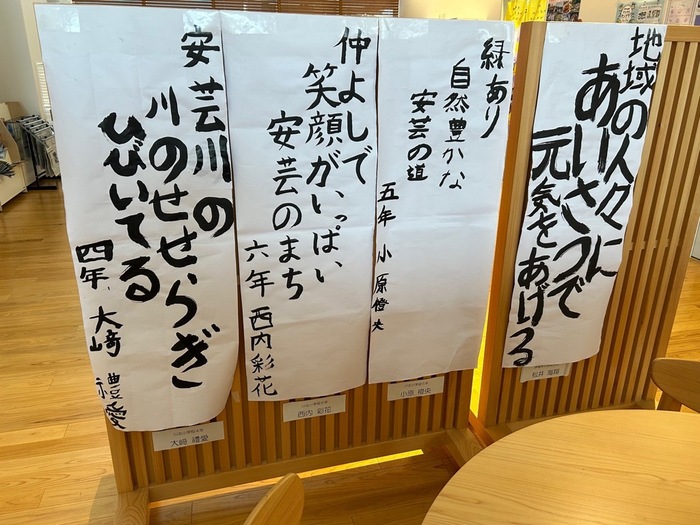 地域の人々に
あいさつで
元気をあげる
松井 海翔
緑あり
自然豊かな
安芸の道
五年 小原橙央
小原 橙央
仲よしで
笑顔がいっぱい
安芸のまち
六年 西内彩花
西内 彩花
安芸川の
川のせせらぎ
ひびいてる
四年 大﨑 禮愛
大﨑 禮愛